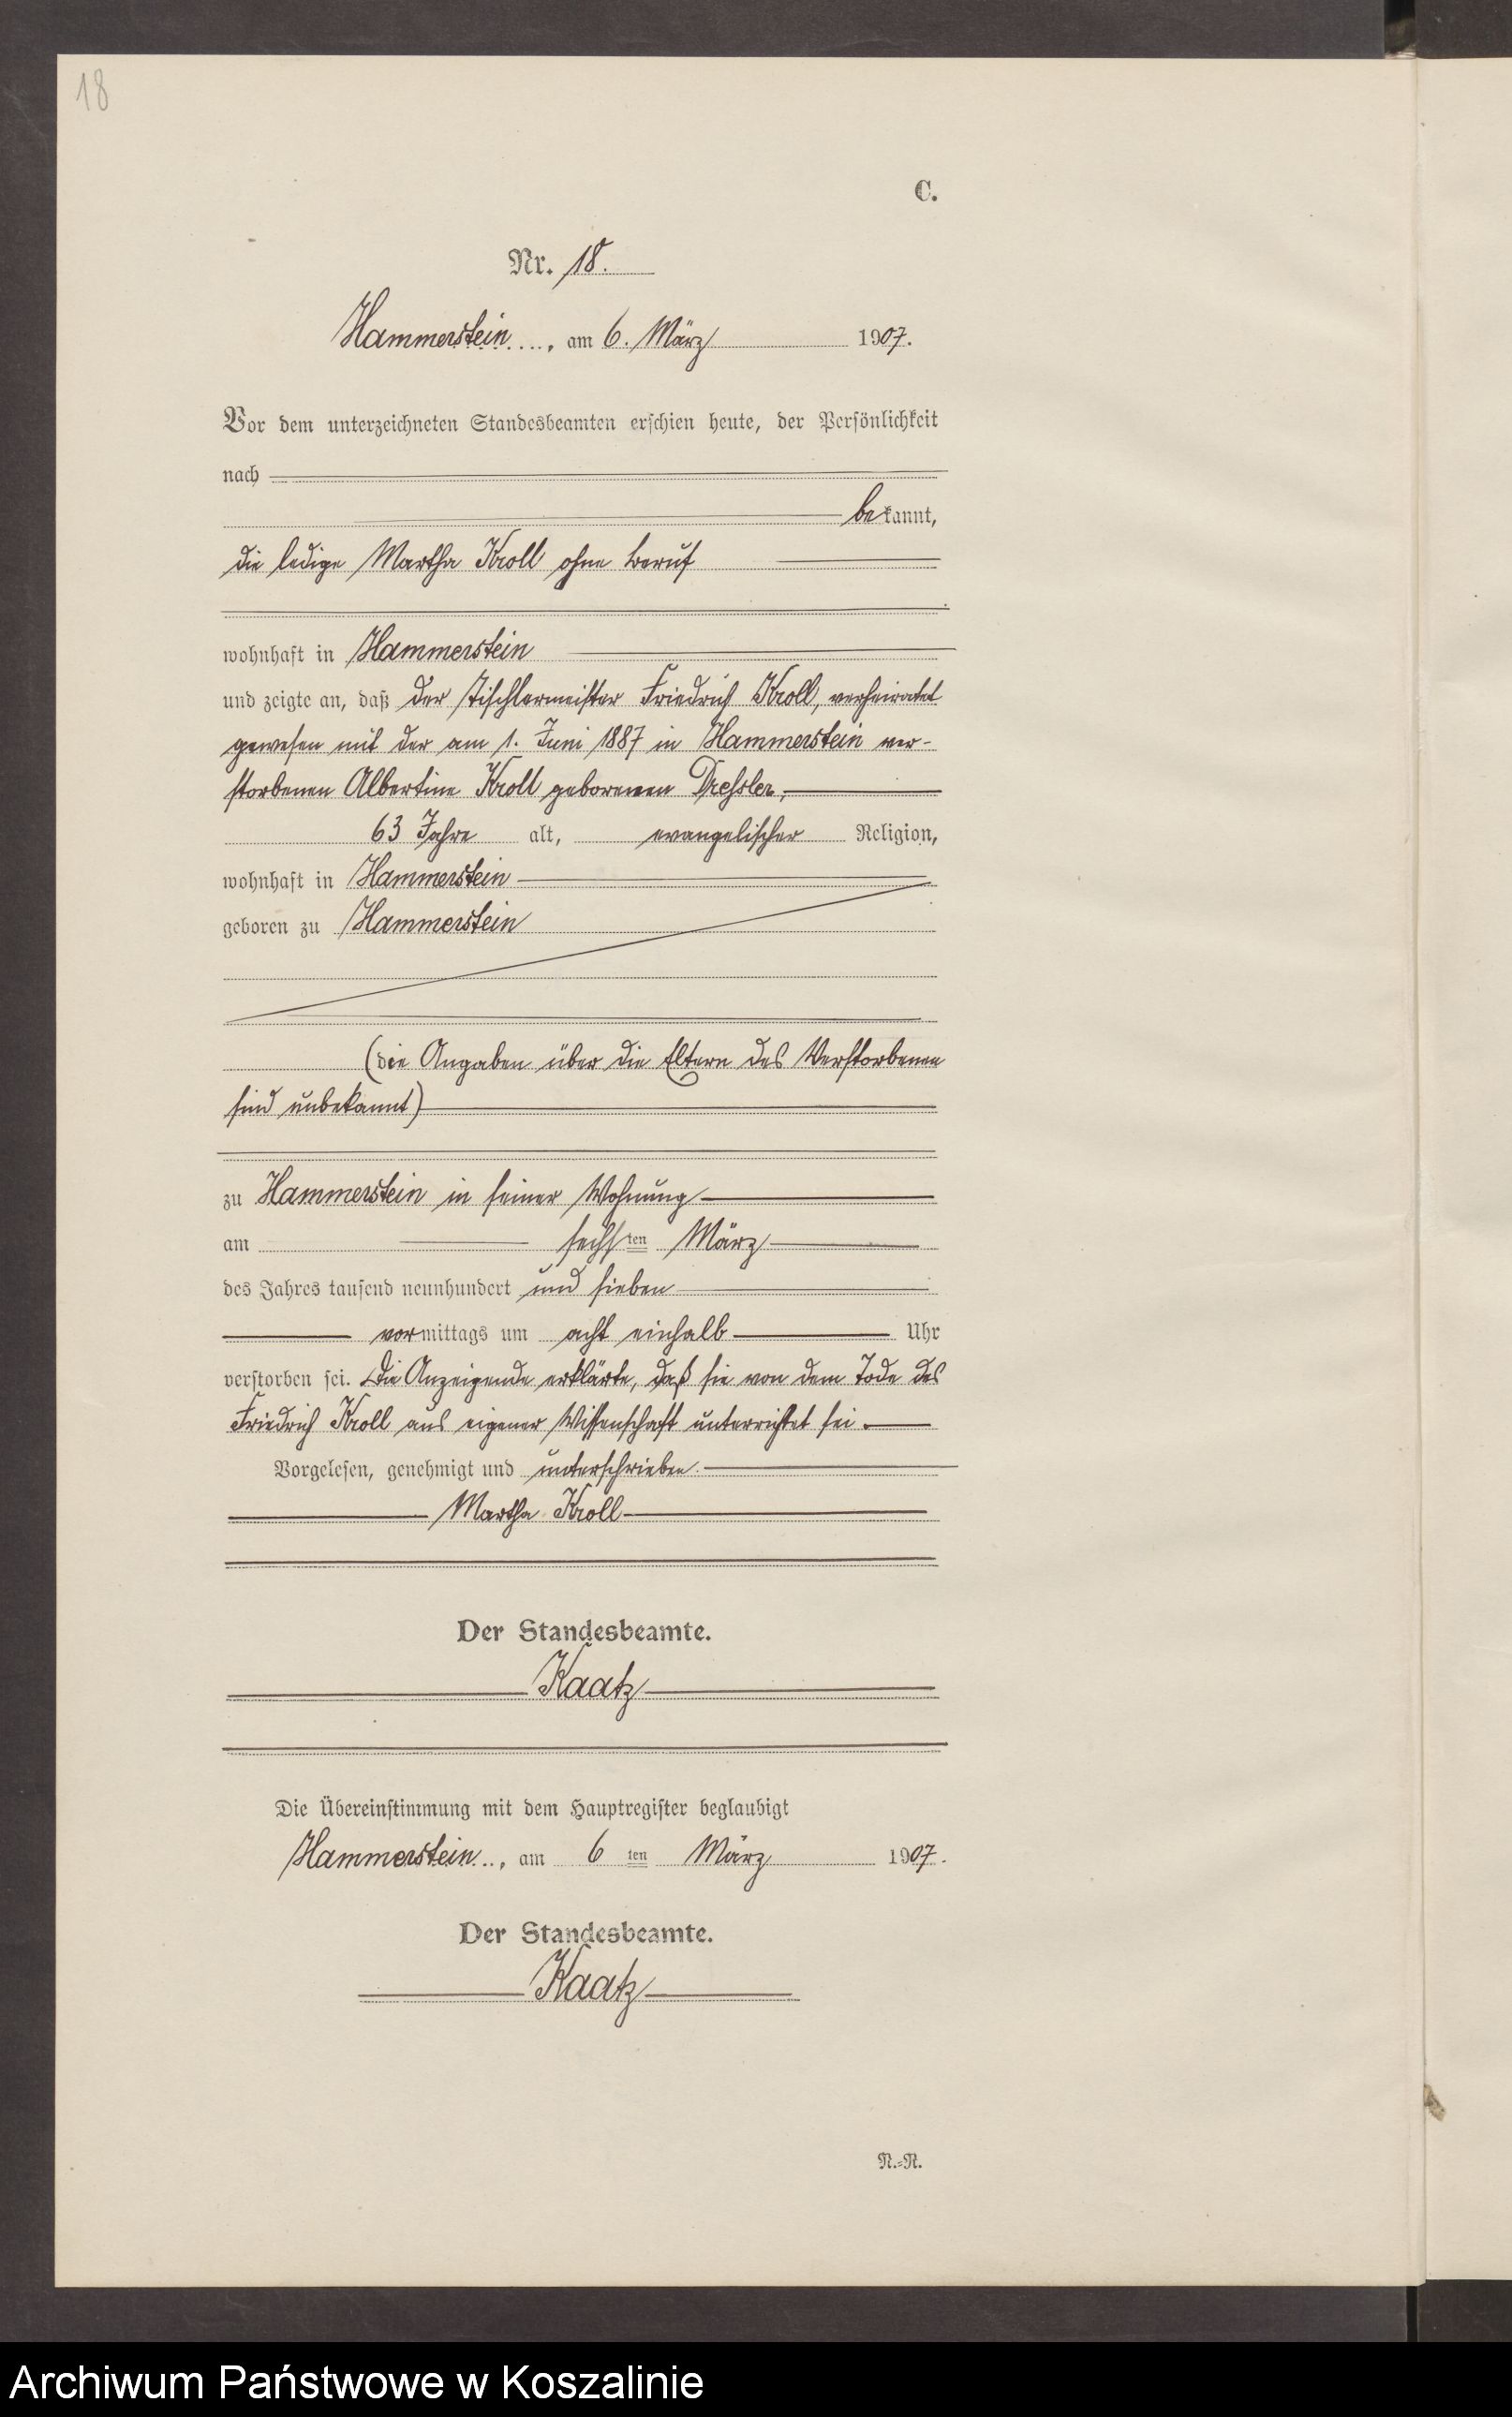 18
C.
Nr. 18.
Hammerstein, am 6. März 1907.
Vor dem unterzeichneten Standesbeamten erschien heute, der Persönlichkeit
nach
bekannt,
die ledige Martha Kroll ohne Beruf
wohnhaft in Hammerstein
und zeigte an, daß der Tischlermeister Friedrich Kroll, verheiratet
gewesen mit der am 1. Juni 1887 in Hammerstein ver-
storbenen Albertine Kroll geborenen Dressler,
63 Jahre alt, evangelischer Religion,
wohnhaft in Hammerstein
geboren zu Hammerstein
(die Angaben über die Eltern des Verstorbenen
sind unbekannt)
zu Hammerstein in seiner Wohnung
am sechsten März
des Jahres tausend neunhundert und sieben
vormittags um acht einhalb Uhr
verstorben sei. Die Anzeigende erklärte, daß sie von dem Tode des
Friedrich Kroll aus eigener Wissenschaft unterrichtet sei.
Vorgelesen, genehmigt und unterschrieben.
Martha Kroll
Der Standesbeamte.
Kaatz
Die Übereinstimmung mit dem Hauptregister beglaubigt
Hammerstein, am 6ten März 1907.
Der Standesbeamte.
Kaatz
N.-R.
Archiwum Państwowe w Koszalinie